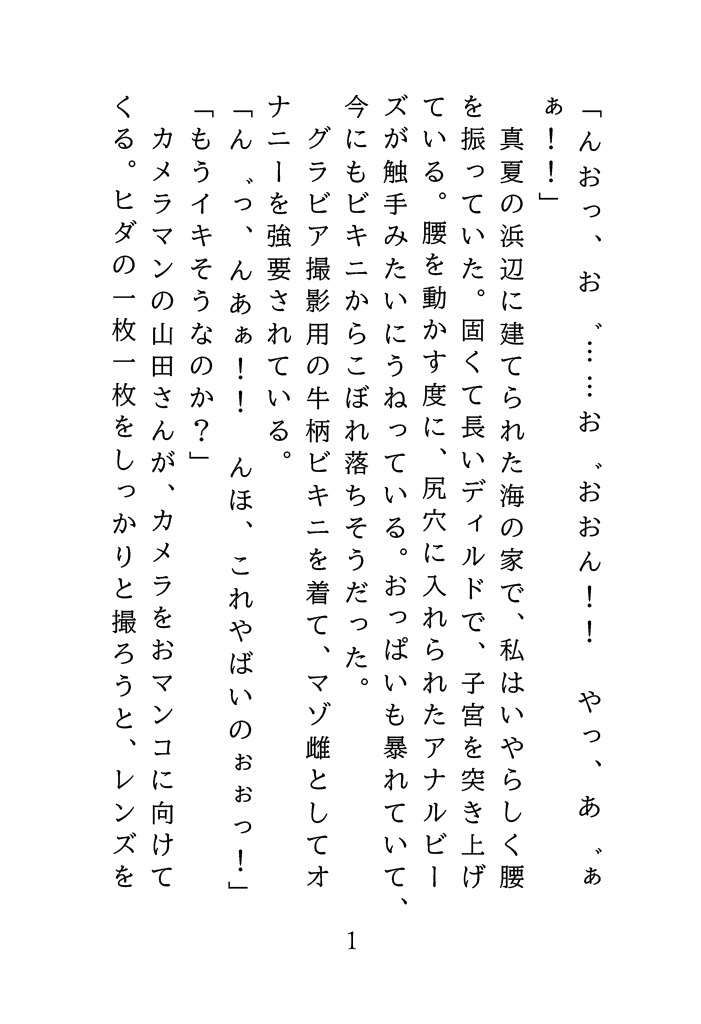 「んおっ、お゛……お゛おおん！！　やっ、あ゛ぁ
ぁ！！」
　真夏の浜辺に建てられた海の家で、私はいやらしく腰
を振っていた。固くて長いディルドで、子宮を突き上げ
ている。腰を動かす度に、尻穴に入れられたアナルビー
ズが触手みたいにうねっている。おっぱいも暴れていて、
今にもビキニからこぼれ落ちそうだった。
　グラビア撮影用の牛柄ビキニを着て、マゾ雌としてオ
ナニーを強要されている。
「ん゛っ、んあぁ！！　んほ、これやばいのぉぉっ！」
「もうイキそうなのか？」
　カメラマンの山田さんが、カメラをおマンコに向けて
くる。ヒダの一枚一枚をしっかりと撮ろうと、レンズを
1